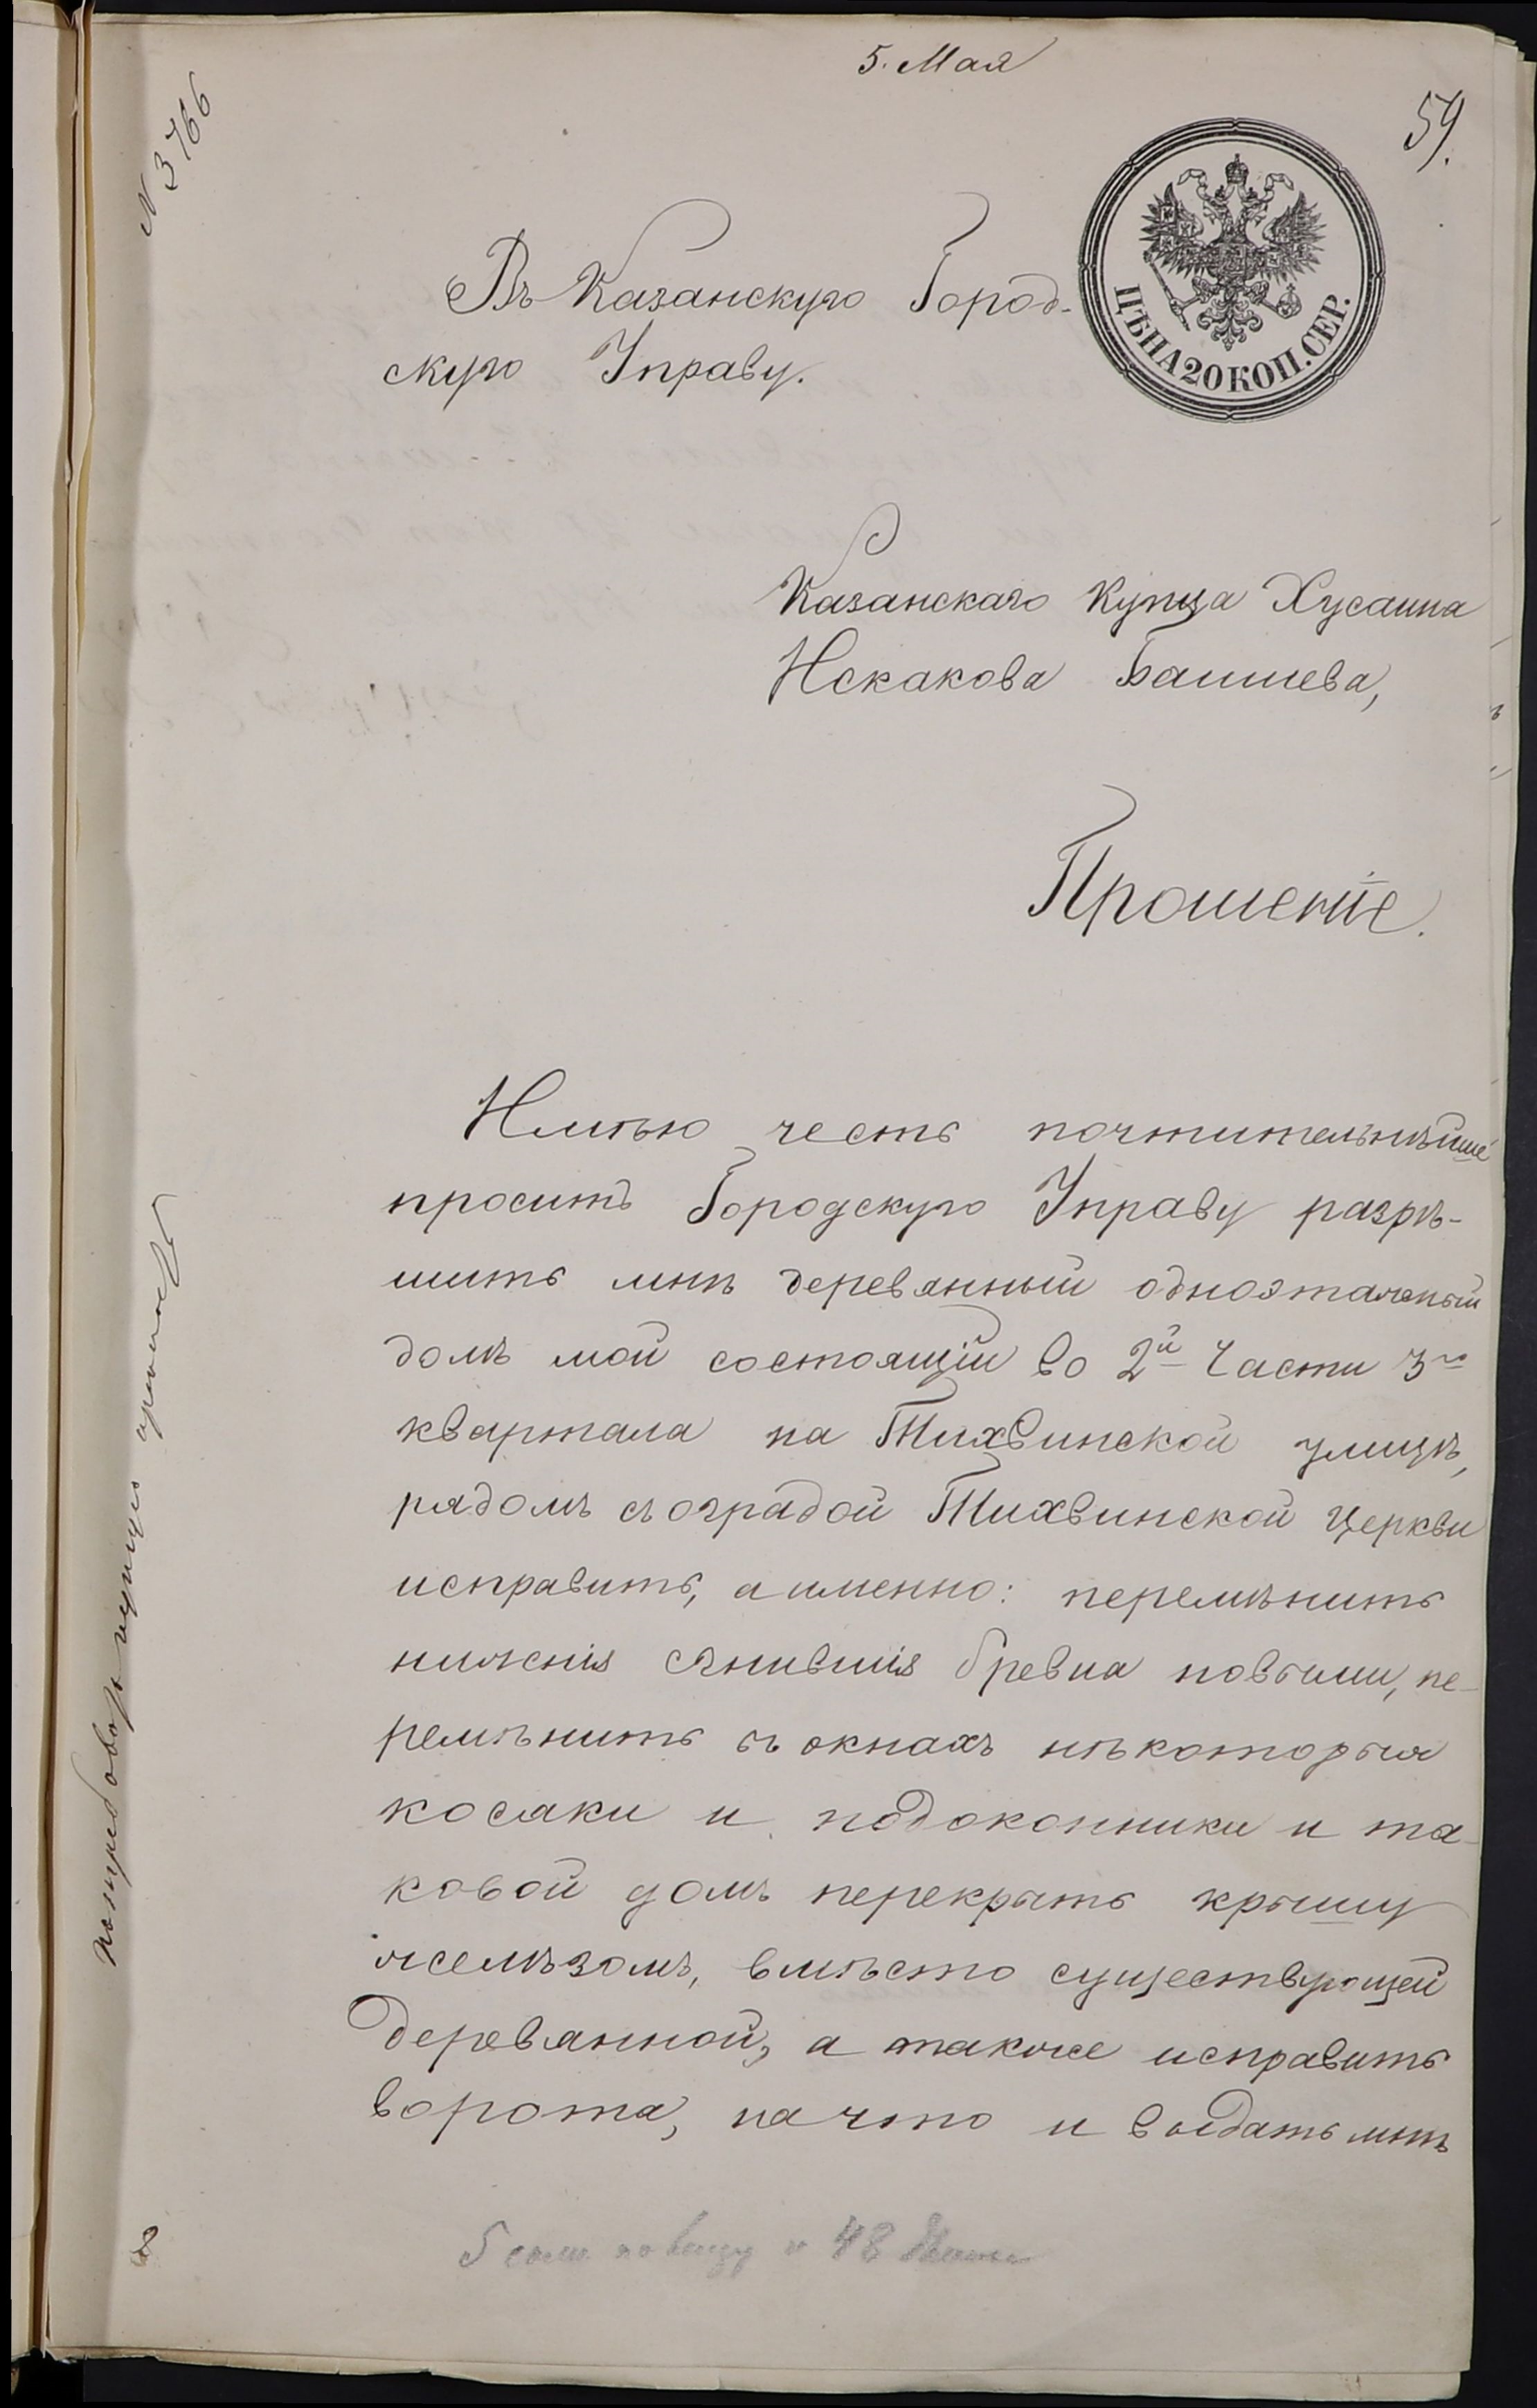 5. Мая
59.
N 3766
ЦѢНА 20 КОП. СЕР.
Въ Казанскую Город-
скую Управу.
Казанскаго Купца Хусаина
Искакова Башева,
Прошеніе.
Имѣю честь почтительнѣйше
просить Городскую Управу разрѣ-
шить мнѣ деревянный одноэтажный
домъ мой состоящій во 2й Части 3го
квартала на Тихвинской улицѣ,
рядомъ съ оградой Тихвинской Церкви
исправить, а именно: перемѣнить
нижнія сгнившія бревна новыми, пе-
ремѣнить въ окнахъ нѣкоторыя
косяки и подоконники и та-
ковой домъ перекрыть крышу
желѣзомъ, вмѣсто существующей
деревянной, а также исправить
ворота, на что и выдать мнѣ
5 саж. по лицу и 48